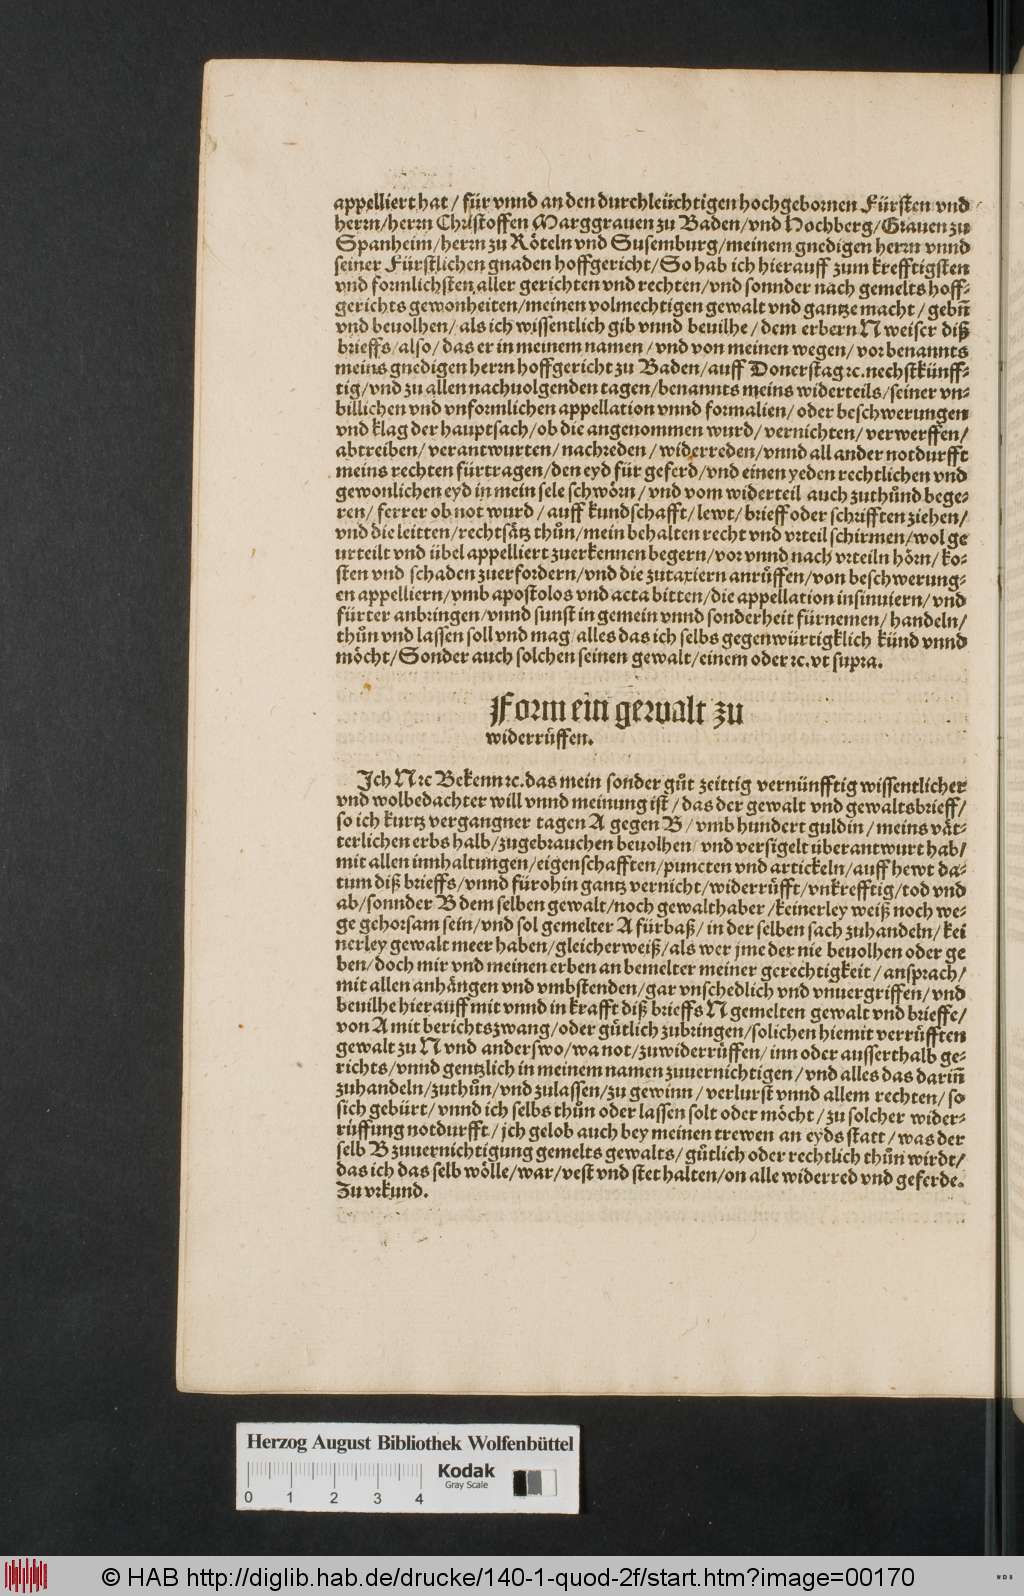 appelliert hat / für vnnd an den durchleüchtigen hochgebornen Fürsten vnd
herrn/herrn Christoffen Marggrauen zu Baden/vnd Hochberg/Grauen zu
Spanheim/herrn zu Röteln vnd Susemburg/meinem gnedigen herrn vnnd
seiner Fürstlichen gnaden hoffgericht/So hab ich hierauff zum krefftigsten
vnd formlichsten aller gerichten vnd rechten/vnd sonnder nach gemelts hoff⸗
gerichts gewonheiten/meinen volmechtigen gewalt vnd gantze macht / gebñ
vnd beuolhen/ als ich wissentlich gib vnnd beuilhe / dem erbern N weiser diß
brieffs/also/das er in meinem namen / vnd von meinen wegen/ vorbenannts
meins gnedigen herrn hoffgericht zu Baden/auff Donerstag ꝛc. nechstkünff⸗
tig/vnd zu allen nachuolgenden tagen/benannts meins widerteils/seiner vn⸗
billichen vnd vnformlichen appellation vnnd formalien/ oder beschwerungen
vnd klag der hauptsach/ob die angenommen wurd/ vernichten/ verwerffen/
abtreiben/ verantwurten/ nachreden / widerreden/vnnd all ander notdurfft
meins rechten fürtragen/den eyd für geferd/vnd einen yeden rechtlichen vnd
gewonlichen eyd in mein sele schwörn / vnd vom widerteil auch zuthůnd bege⸗
ren/ ferrer ob not wurd / auff kundschafft/ lewt/ brieff oder schrifften ziehen/
vnd die leitten/rechtsätz thůn/mein behalten recht vnd vrteil schirmen/wol ge
urteilt vnd übel appelliert zuerkennen begern/vor vnnd nach vrteiln hörn/ ko⸗
sten vnd schaden zuerfordern/vnd die zutaxiern anrůffen/von beschwerung⸗
en appelliern/vmb apostolos vnd acta bitten/die appellation insinuiern/ vnd
fürter anbringen/vnnd sunst in gemein vnnd sonderheit fürnemen/ handeln/
thůn vnd lassen soll vnd mag/alles das ich selbs gegenwürtigklich künd vnnd
möcht/Sonder auch solchen seinen gewalt/einem oder ꝛc. vt supra.
Form ein gewalt zu
widerrůffen.
Ich N ꝛc Bekenn ꝛc. das mein sonder gůt zeittig vernünfftig wissentlicher
vnd wolbedachter will vnnd meinung ist / das der gewalt vnd gewaltsbrieff/
so ich kurtz vergangner tagen A gegen B / vmb hundert guldin / meins vät⸗
terlichen erbs halb/zugebrauchen beuolhen/ vnd versigelt überantwurt hab/
mit allen innhaltungen/eigenschafften/puncten vnd artickeln/auff hewt da⸗
tum diß brieffs/vnnd fürohin gantz vernicht/widerrůfft/vnkrefftig/tod vnd
ab/sonnder B dem selben gewalt/noch gewalthaber /keinerley weiß noch we⸗
ge gehorsam sein/vnd sol gemelter A fürbaß/ in der selben sach zuhandeln/ kei
nerley gewalt meer haben/gleicherweiß/als wer jme der nie beuolhen oder ge
ben/ doch mir vnd meinen erben an bemelter meiner gerechtigkeit / ansprach/
mit allen anhängen vnd vmbstenden/gar vnschedlich vnd vnuergriffen/ vnd
beuilhe hierauff mit vnnd in krafft diß brieffs N gemelten gewalt vnd brieffe/
von A mit berichtszwang/oder gůtlich zubringen/solichen hiemit verrůfften
gewalt zu N vnd anderswo/wa not/zuwiderrůffen/ inn oder ausserthalb ge⸗
richts/vnnd gentzlich in meinem namen zuuernichtigen / vnd alles das darinn̄
zuhandeln/zuthůn/vnd zulassen/zu gewinn / verlurst vnnd allem rechten/ so
sich gebürt/ vnnd ich selbs thůn oder lassen solt oder möcht / zu solcher wider⸗
rüffung notdurfft / jch gelob auch bey meinen trewen an eyds statt / was der
selb B zuuernichtigung gemelts gewalts/ gůtlich oder rechtlich thůn wirdt/
das ich das selb wölle/war/vest vnd stet halten/on alle widerred vnd geferde.
Zu vrkund.
Herzog August Bibliothek Wolfenbüttel
Kodak
Gray Scale
0 1 2 3 4
© HAB http://diglib.hab.de/drucke/140-1-quod-2f/start.htm?image=00170